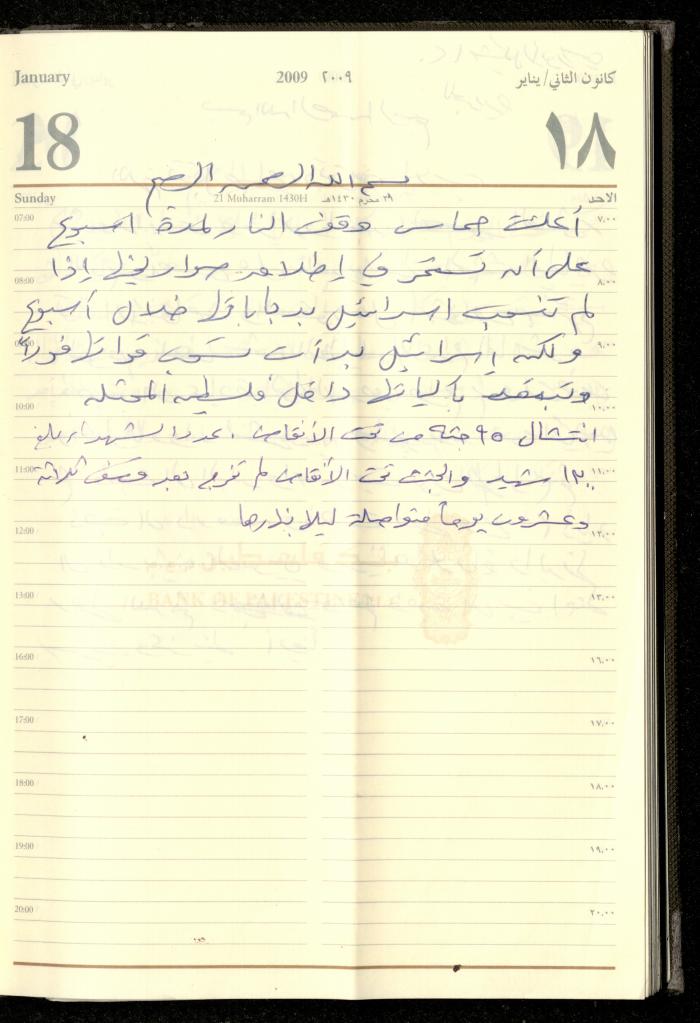 January 2009 ٢٠٠٩ كانون الثاني/يناير
18 ١٨
بسم الله الرحمن الرحيم
Sunday 21 Muharram 1430H ٢٩ محرم ١٤٣٠هـ الاحد
07:00 ٧,٠٠
أعلنت حماس وقف النار لمدة اسبوع
على أن تستمر في إطلاق صواريخها إذا
08:00 ٨,٠٠
لم تنسحب اسرائيل بدباباتها خلال أسبوع
09:00 ٩,٠٠
ولكن إسرائيل بدأت بسحب قواتها فوراً
وتبعد بآلياتها داخل فلسطين المحتله
10:00 ١٠,٠٠
انتشال ٩٥ جثه من تحت الأنقاض . عدد الشهداء بلغ
11:00 ١١,٠٠
١٣٠٠ شهيد والجثث تحت الأنقاض لم تخرج بعد قصف ثلاثة
وعشرون يوماً متواصلة ليلا نهارها
12:00 ١٢,٠٠
BANK OF PALESTINE
13:00 ١٣,٠٠
16:00 ١٦,٠٠
17:00 ١٧,٠٠
18:00 ١٨,٠٠
19:00 ١٩,٠٠
20:00 ٢٠,٠٠